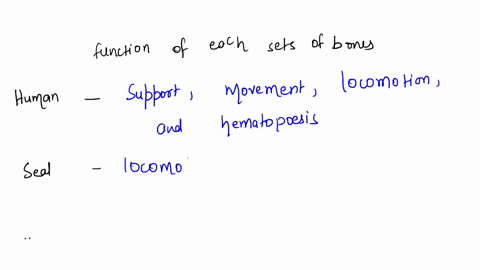 function of each sets of bones
Human — Support, movement, locomotion,
and hematopoesis
Seal - locomo
..